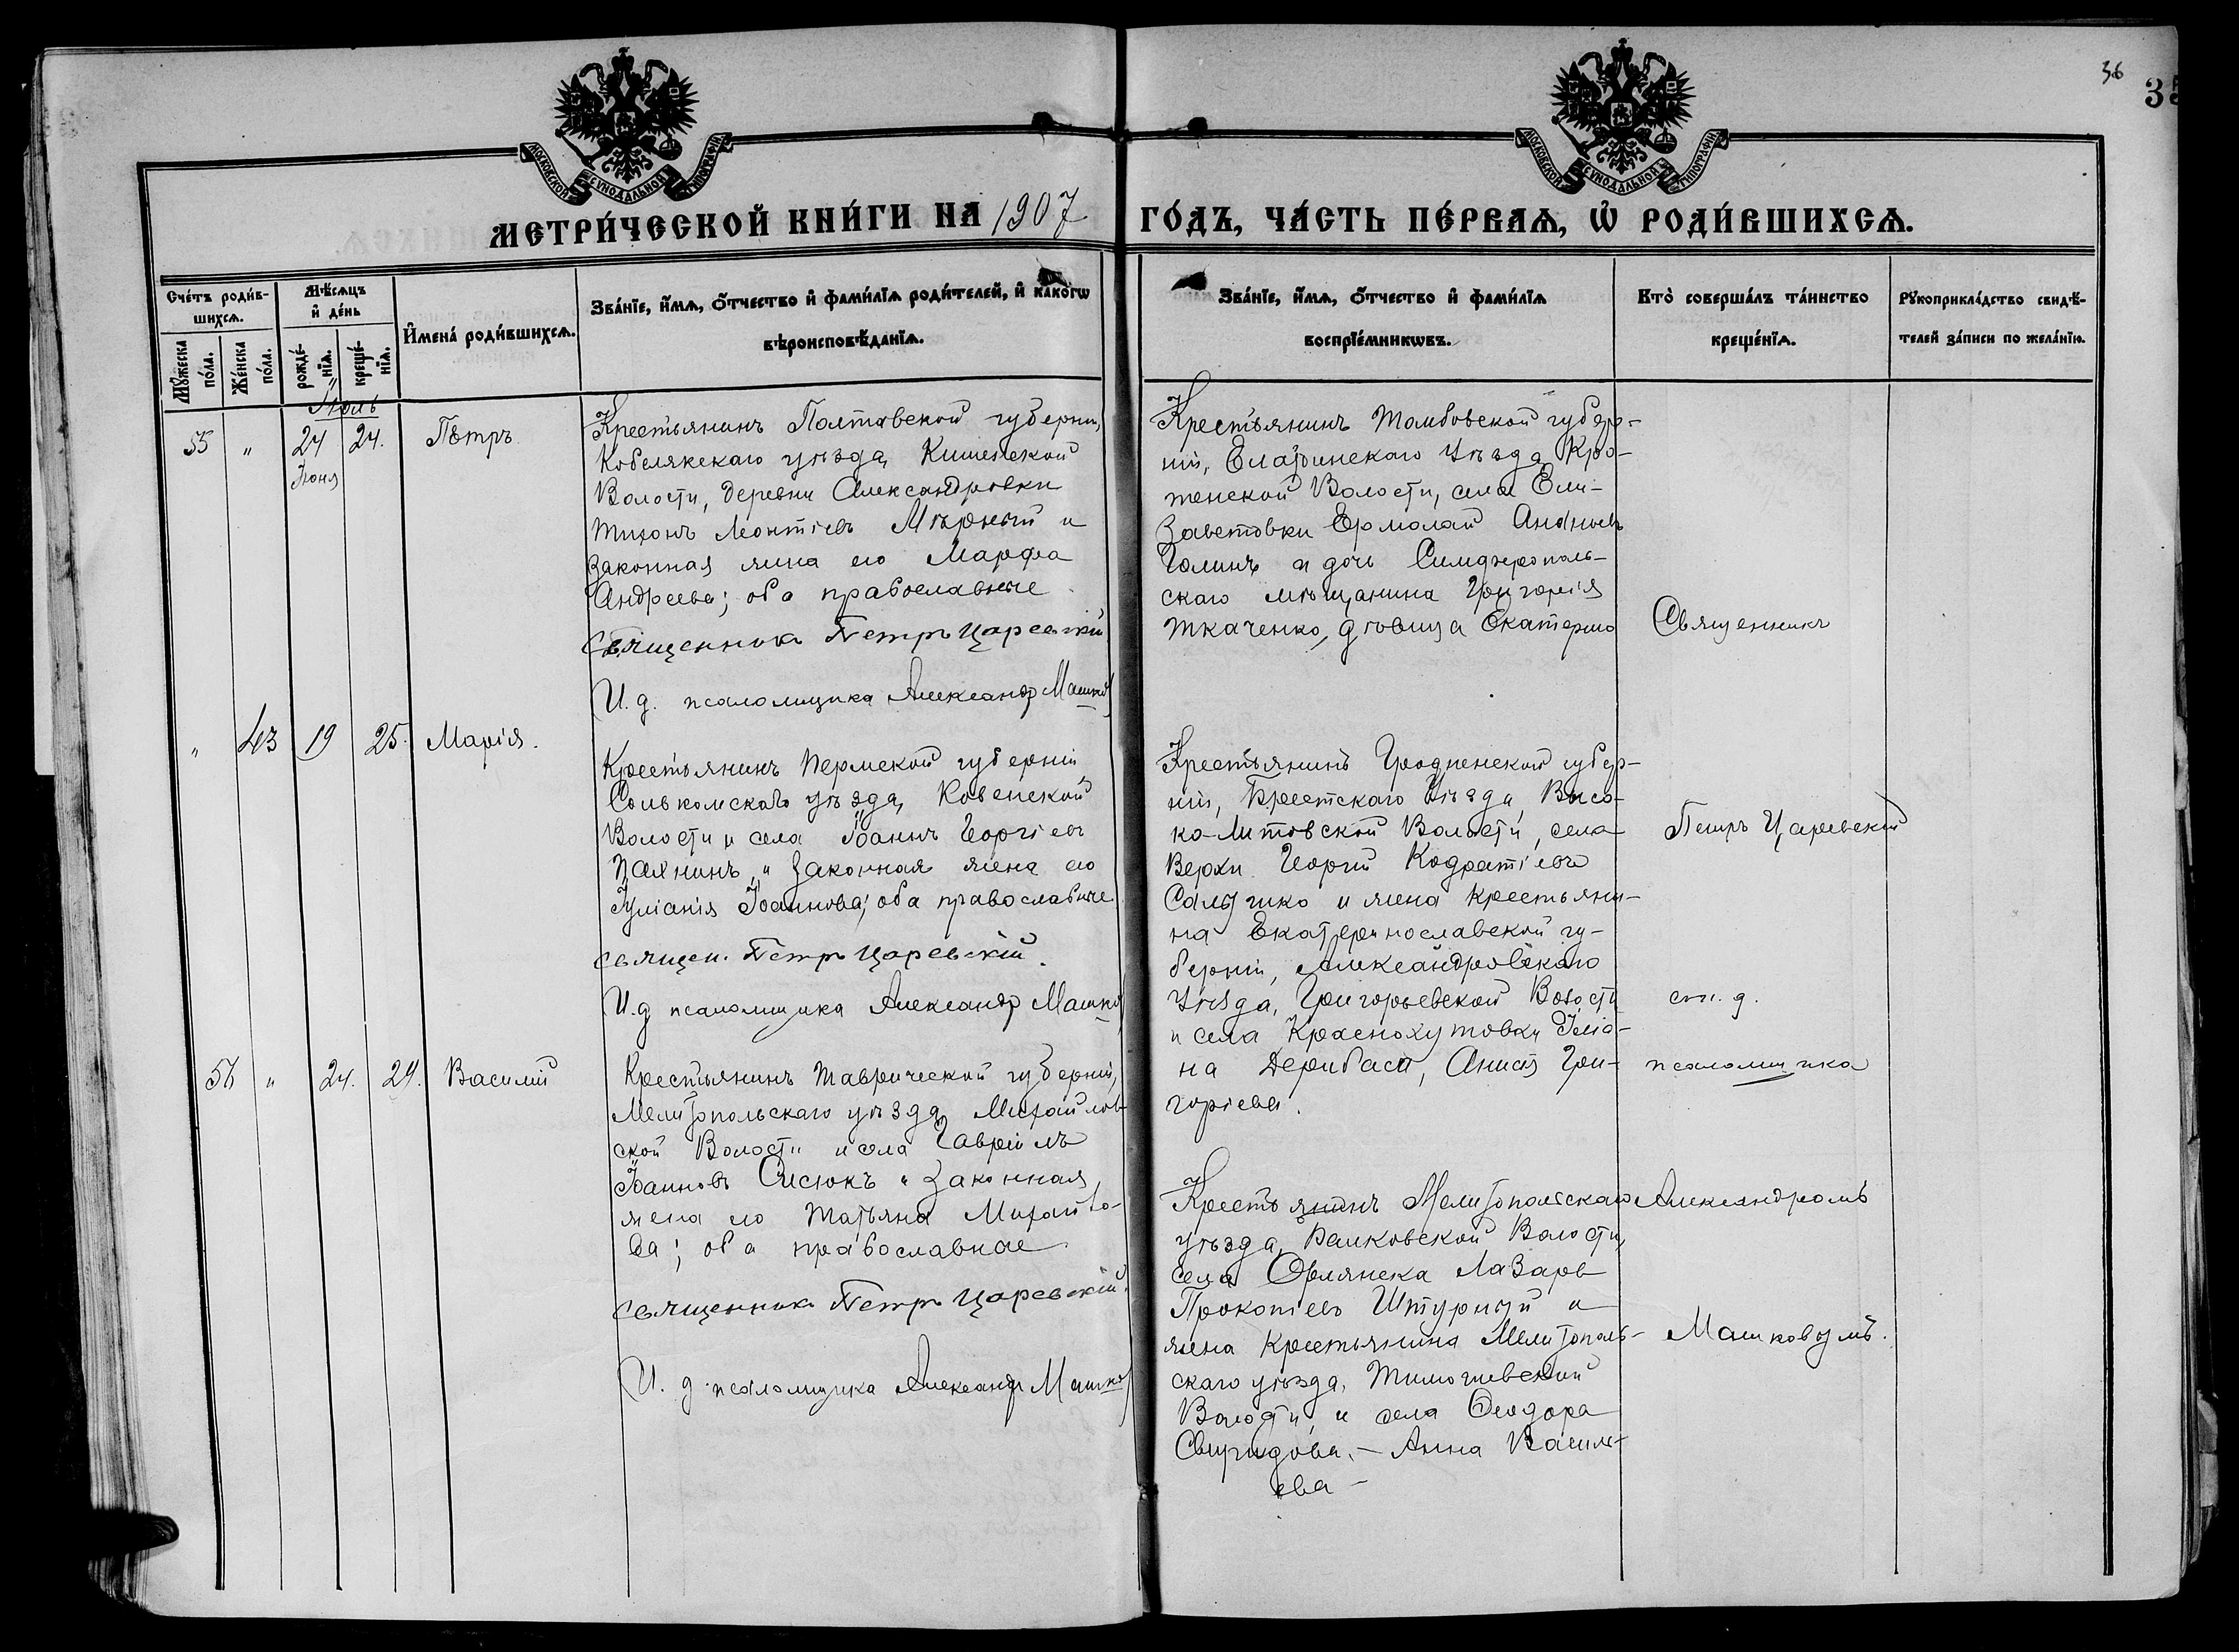 36
35
МОСКОВСКОЙ СУНОДАЛЬНОЙ ТИПОГРАФІИ
МОСКОВСКОЙ СУНОДАЛЬНОЙ ТИПОГРАФІИ
МЕТРИ́ЧЕСКОЙ КНИ́ГИ НА 1907
ГО́ДЪ, ЧА́СТЬ ПЕ́РВАѦ, Ѽ РОДИ́ВШИХСѦ.
Сче́тъ роди́в-
шихсѧ.
Мꙋ́жеска
по́ла.
Же́нска
по́ла.
Мѣ́сѧцъ
и҆ де́нь
рожде́-
нїѧ.
креще́-
нїѧ.
И҆мена̀ роди́вшихсѧ.
Зва́нїе, и҆́мѧ, ѻ҆́тчество и҆ фами́лїѧ роди́телей, и҆ како́гѡ
вѣроисповѣ́данїѧ.
Зва́нїе, и҆́мѧ, ѻ҆́тчество и҆ фами́лїѧ
воспрїе́мникѡвъ.
Кто̀ соверша́лъ та́инство
креще́нїѧ.
Рꙋкоприкла́дство свидѣ́-
телей за́писи по жела́нїю.
Іюль
55 " 24 24. Пѣтръ
Іюня
Крестьянинъ Полтавской губерніи,
Кобелякскаго уѣзда, Кишенской
Волости, деревни Александровки
Тихонъ Леонтіевъ Мѣрный и
законная жена его Марфа
Андреева; оба православные.
Священника Петръ Царевскій
И. д. псаломщика Александр Машков
Крестьянинъ Тамбовской губер-
ніи, Елатинскаго Уѣзда,
тенской Волости, села Ели-
заветовки Ермолай Ананьевъ
Галинъ и дочь Симферополь-
скаго мѣщанина Григорія
Ткаченко, дѣвица Екатерина
Священникъ
" 43 19 25. Марія.
Крестьянинъ Пермской губерніи
Соликомскаго уѣзда,
Волости и села Іоаннъ Георгіевъ
Пахнинъ и законная жена его
Іуліанія Іоаннова; оба православные
священ. Петръ Царевскій.
И.д псаломщика Александр Машков
Крестьянинъ Гродненской губер-
ніи, Брестскаго Уѣзда, Высо-
ко-Литовской Волости, села
Верхи Георгій Кодратіевъ
и жена крестьяни-
на Екатеринославской гу-
берніи, Александровскаго
Уѣзда, Григорьевской Волости
и села
на Дерибаса, Григоріева.
Петръ Царевскій
с и. д.
псаломщика
56 " 24. 29. Василій
Крестьянинъ Таврической губерніи,
Мелитопольскаго уѣзда, Михайлов-
ской Волости и села Гавріилъ
Іоанновъ Сисюкъ и законная
жена его Татьяна Михайло-
ва; оба православные.
священника Петръ Царевскій.
И. д. псаломщика Александр Машков
Крестьянинъ Мелитопольскаго
уѣзда, Волости,
села Орлянска Лазарь
Прокопіевъ Штурный и
жена крестьянина Мелитополь-
скаго уѣзда, Тимошевской
Волости, и села Ѳеодора
Свиридова, – Анна Василь-
ева –
Александромъ
Машковымъ.